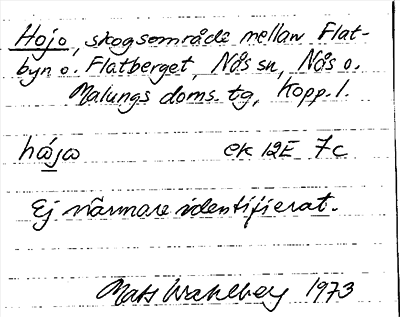 Hojo, skogsområde mellan Flat-
byn o. Flatberget, Nås sn, Nås o.
Malungs doms. tg, Kopp. l.
hája ek 12E 7c
Ej närmare identifierat.
Mats Wahlberg 1973